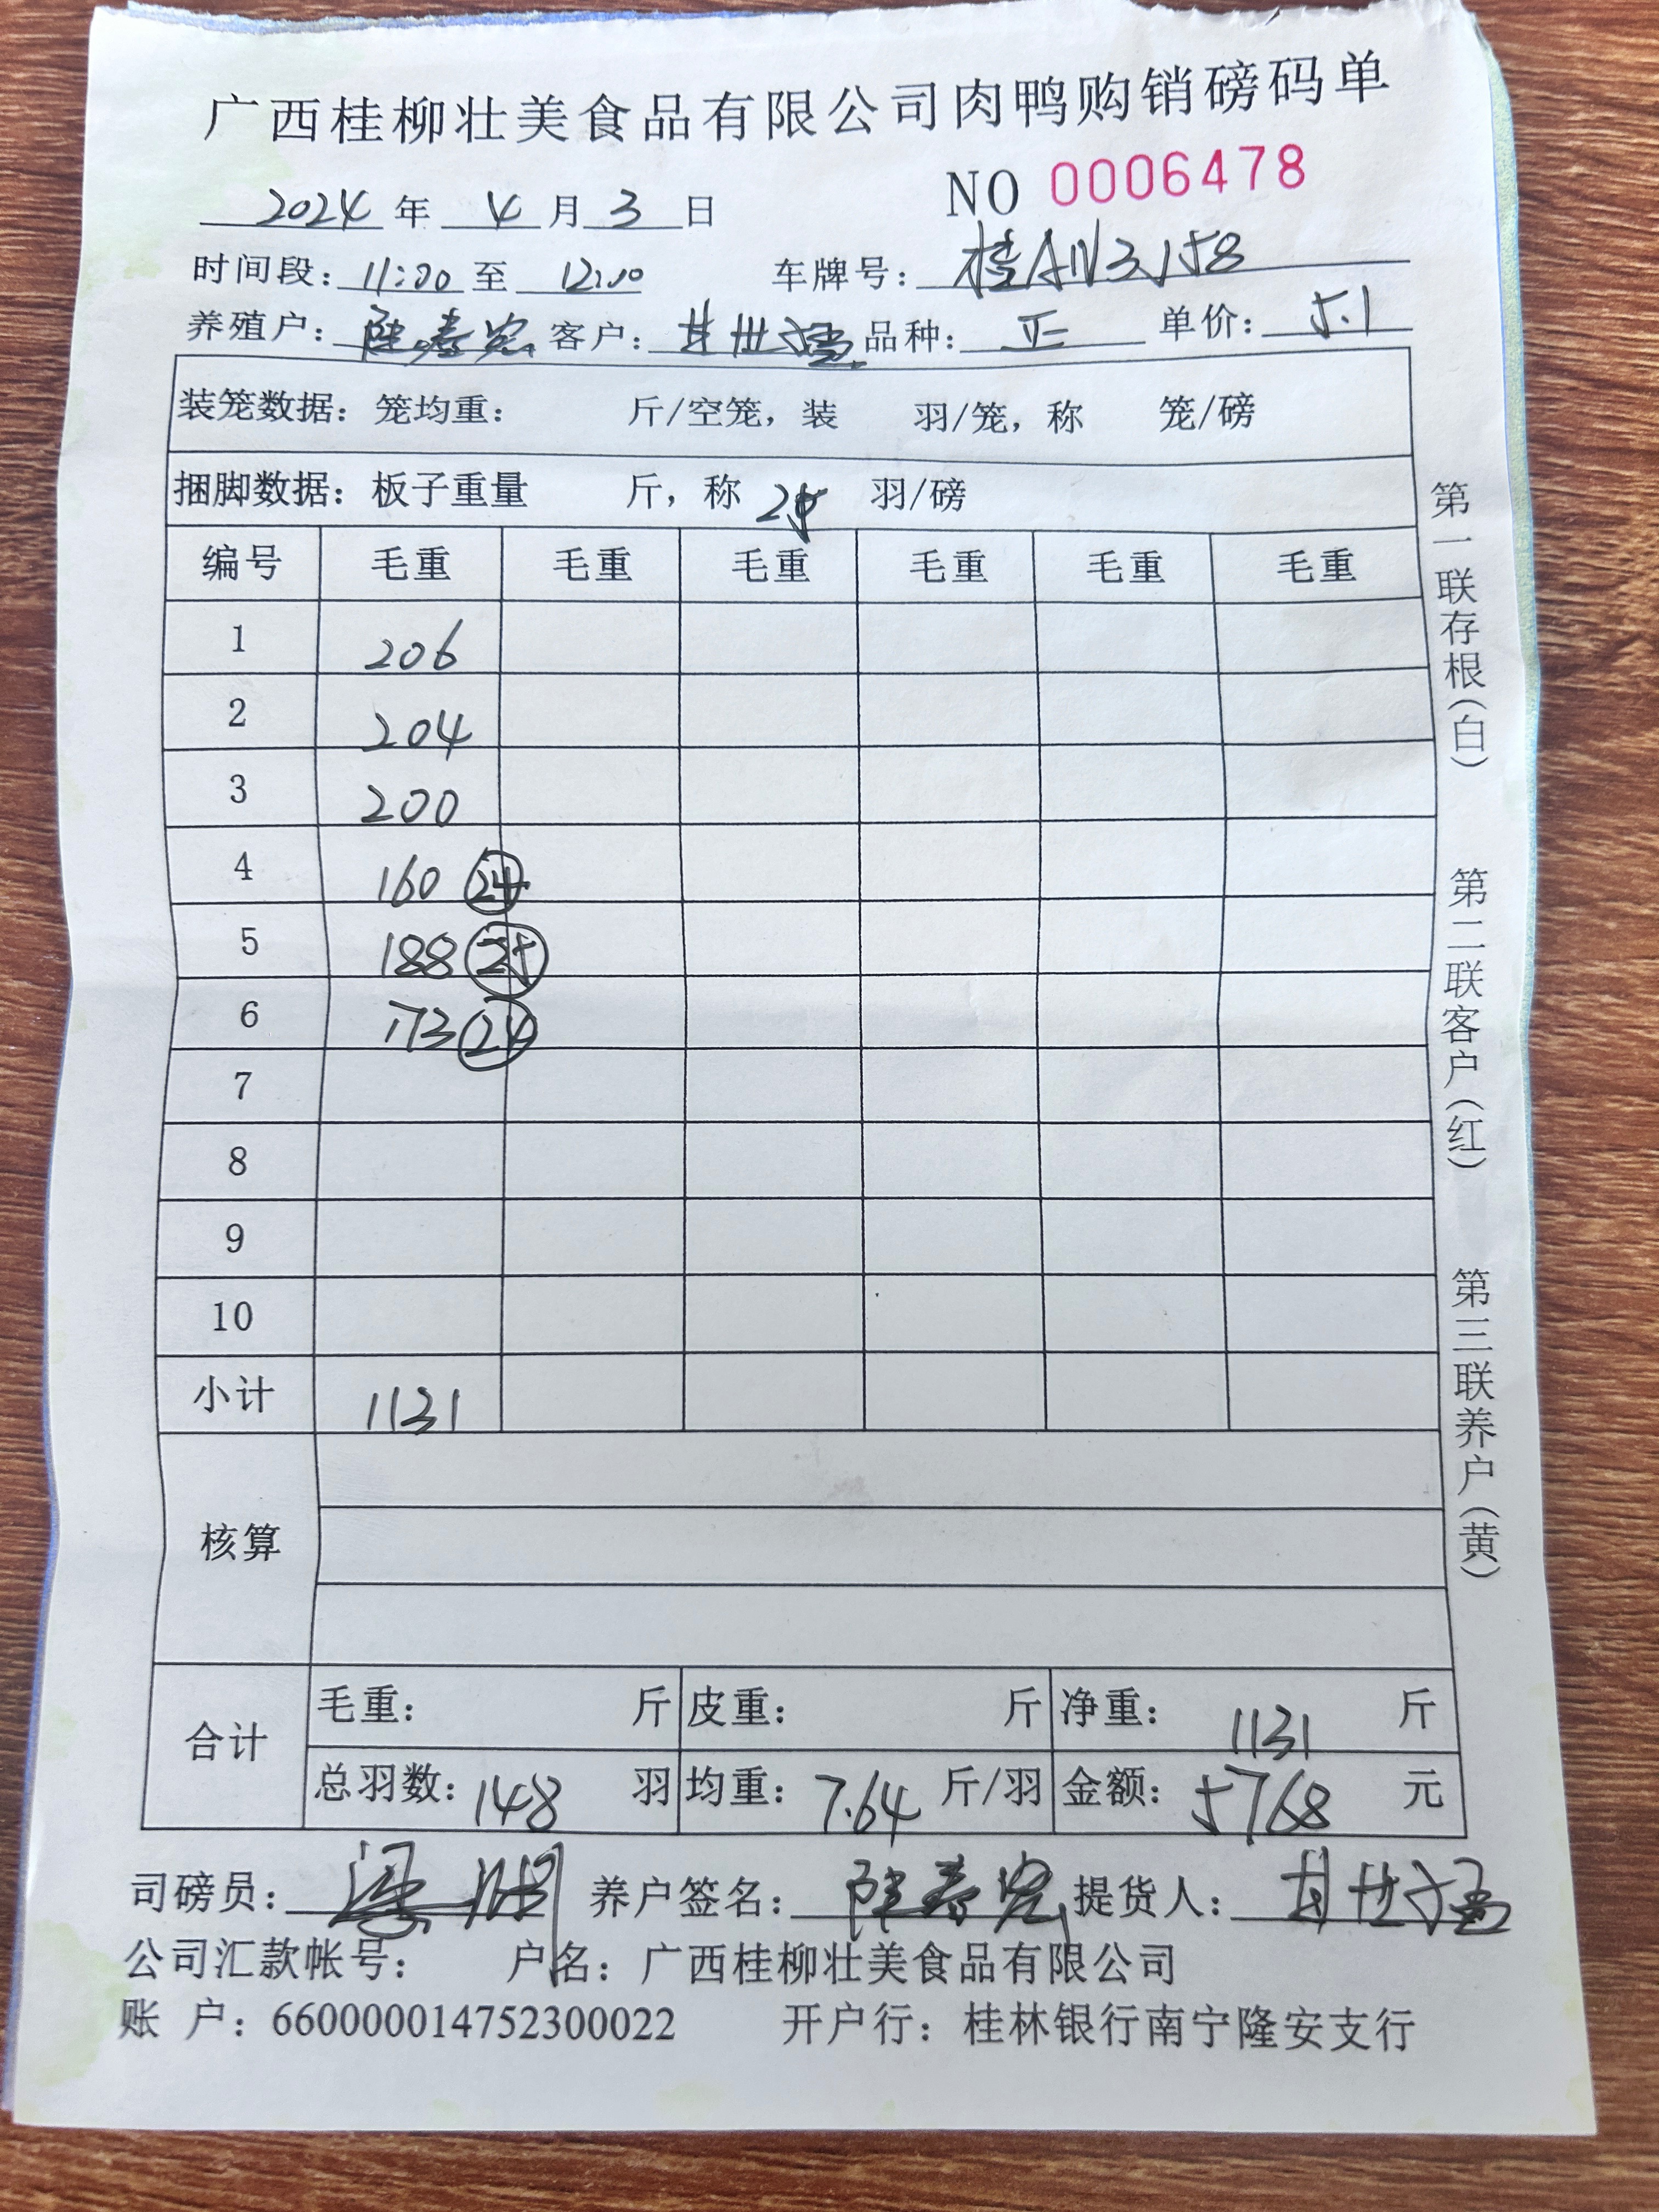 广西桂柳壮美食品有限公司肉鸭购销磅码单
NO 0006478
2024 年 4 月 3 日
时间段: 11:00 至 12:10 车牌号: 桂AN3J58
养殖户: 陆春 客户: 甘世 品种: 正 单价: 5.1
装笼数据: 笼均重: 斤/空笼, 装 羽/笼, 称 笼/磅
捆脚数据: 板子重量 斤, 称 25 羽/磅
编号 毛重 毛重 毛重 毛重 毛重 毛重
1 206
2 204
3 200
4 160 24
5 188 25
6 173 24
7
8
9
10
小计 1131
核算
合计 毛重: 斤 皮重: 斤 净重: 1131 斤
总羽数: 148 羽 均重: 7.64 斤/羽 金额: 5768 元
司磅员: 梁 养户签名: 陆春 提货人: 甘世
公司汇款帐号: 户名: 广西桂柳壮美食品有限公司
账 户: 660000014752300022 开户行: 桂林银行南宁隆安支行
第一联存根(白) 第二联客户(红) 第三联养户(黄)